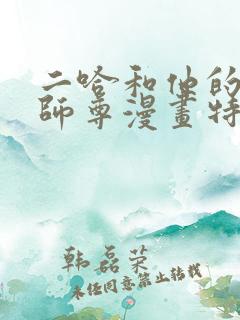 二哈和他的
師尊漫畫特
韩磊荣
未经同意禁止转载